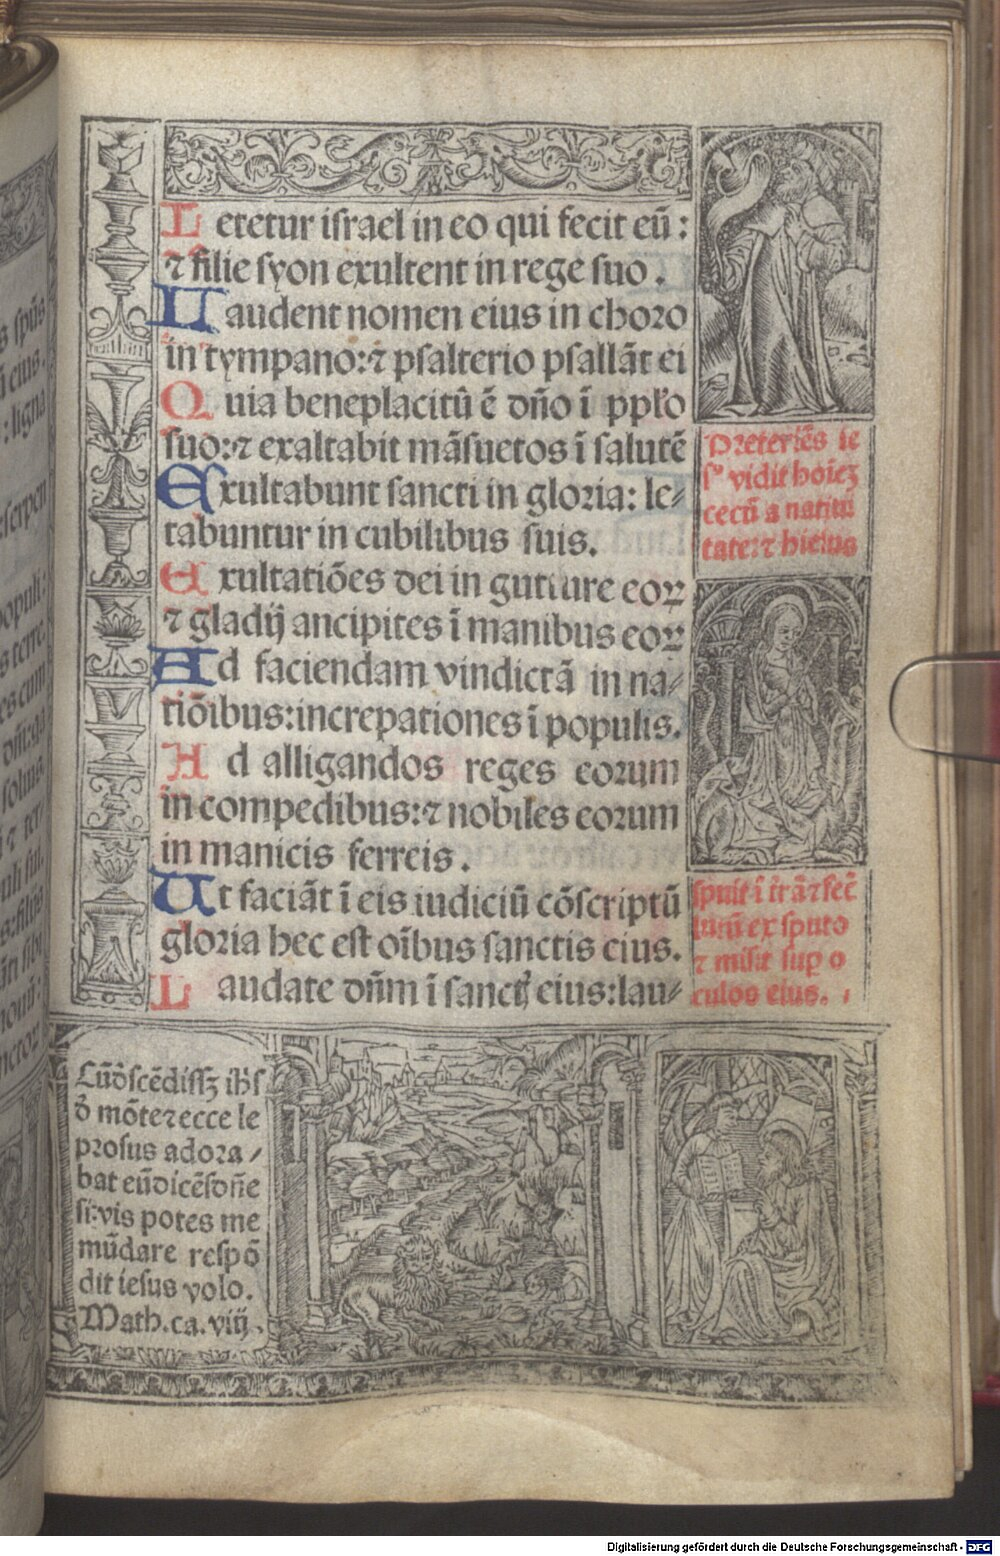 Letetur israel in eo qui fecit eũ:
⁊ filie syon exultent in rege suo.
Laudent nomen eius in choro
in tympano:⁊ psalterio psallãt ei
Quia beneplacitũ ẽ dño ĩ pplo
suo:⁊ exaltabit mãsuetos ĩ salutẽ
Exultabunt sancti in gloria: le⸗
tabuntur in cubilibus suis.
Exultatiões dei in gutture eoꝝ
⁊ gladij ancipites ĩ manibus eoꝝ
Ad faciendam vindictã in na⸗
tiõibus:increpationes ĩ populis.
Ad alligandos reges eorum
in compedibus:⁊ nobiles eorum
in manicis ferreis.
Ut faciãt ĩ eis iudiciũ cõscriptũ
gloria hec est oĩbus sanctis eius.
Laudate dñm ĩ sanctꝭ eius:lau⸗
Preteriẽs ie
sꝰ vidit hoiẽꝫ
cecũ a natiui
tate:⁊
spuit ĩ trã ⁊ fec̃
lutũ ex sputo
⁊ misit sup o
culos eius.
Cũ dscẽdissꝫ ihs
d̃ mõte ⁊ ecce le
prosus adora/
bat eũ dicẽs dñe
si:vis potes me
mũdare respõ
dit iesus volo.
Math.ca.viij.
Digitalisierung gefördert durch die Deutsche Forschungsgemeinschaft - DFG